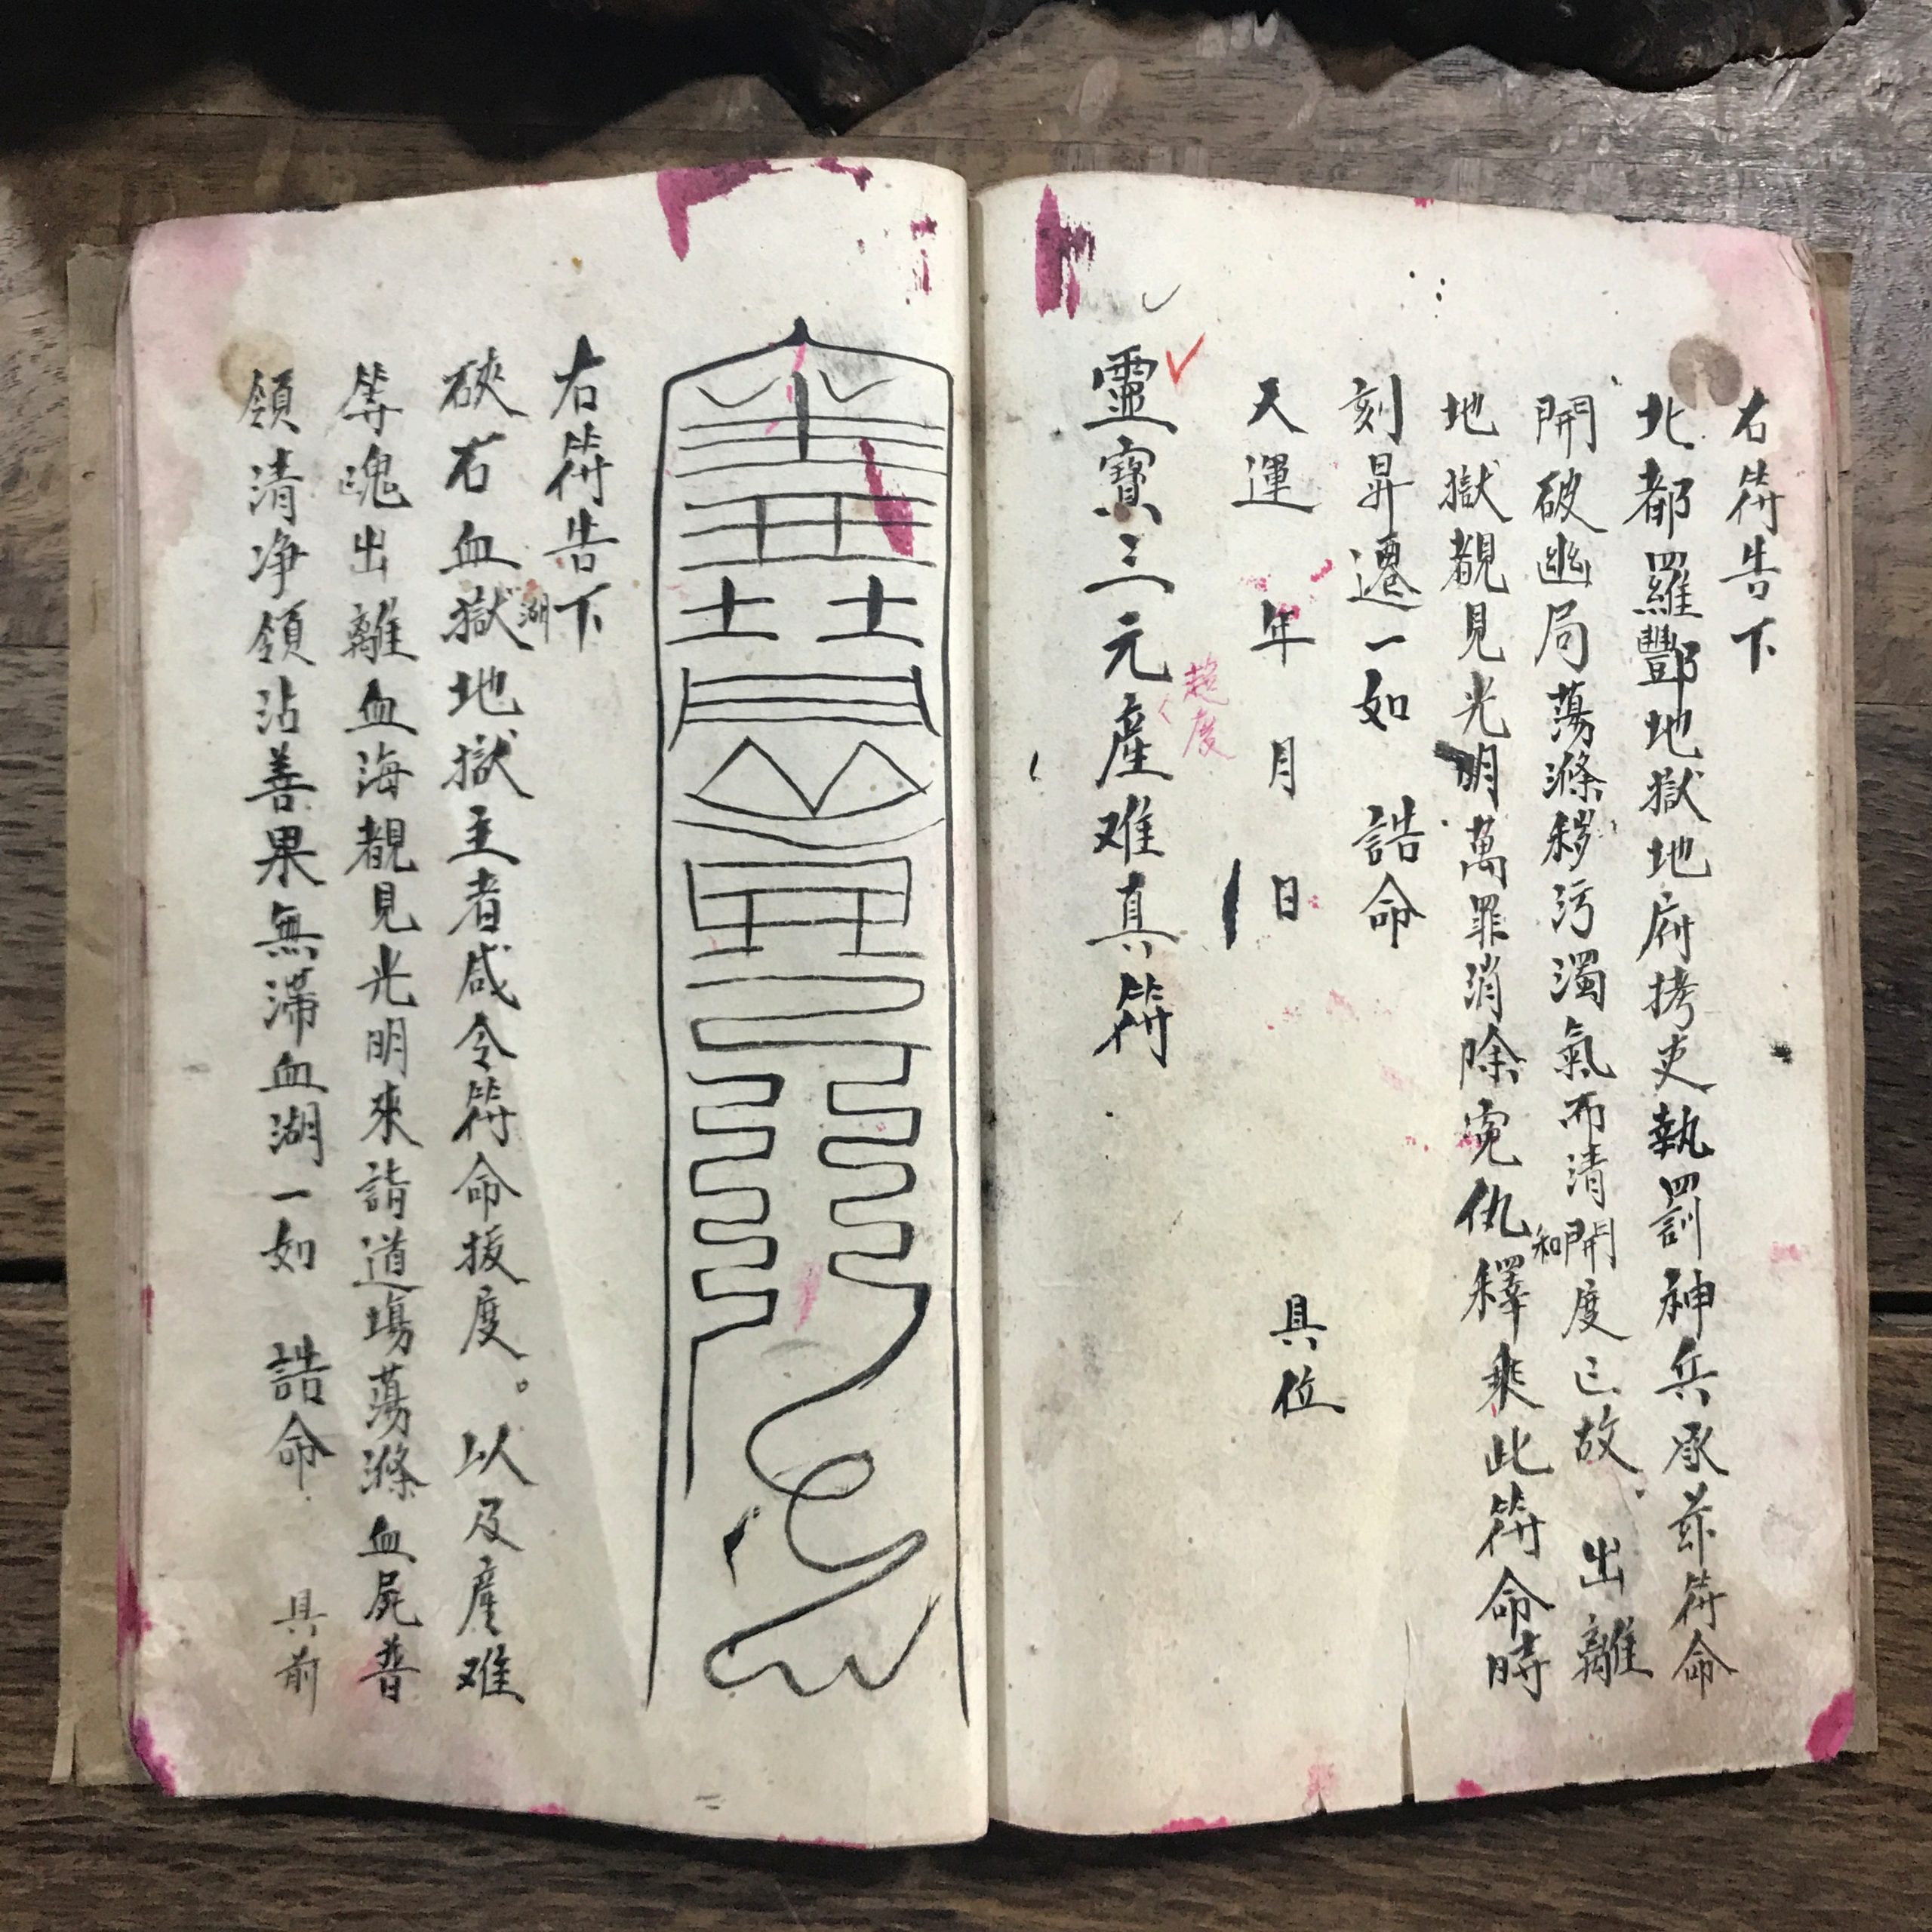 右符告下
北都羅酆地獄地府拷吏執罰神兵承茲符命
開破幽局蕩滌穢污濁氣而清和開度已故 出離
地獄覩見光明萬罪消除寃仇釋乘此符命時
刻昇遷一如 誥命
天運 年 月 日 具位
靈寶三元產难真符
超度
右符告下
硤石血湖獄地獄主者咸令符命拔度。以及產难
等魂出離血海覩見光明來詣道場蕩滌血屍普
領清净領沾善果無滯血湖一如 誥命 具前